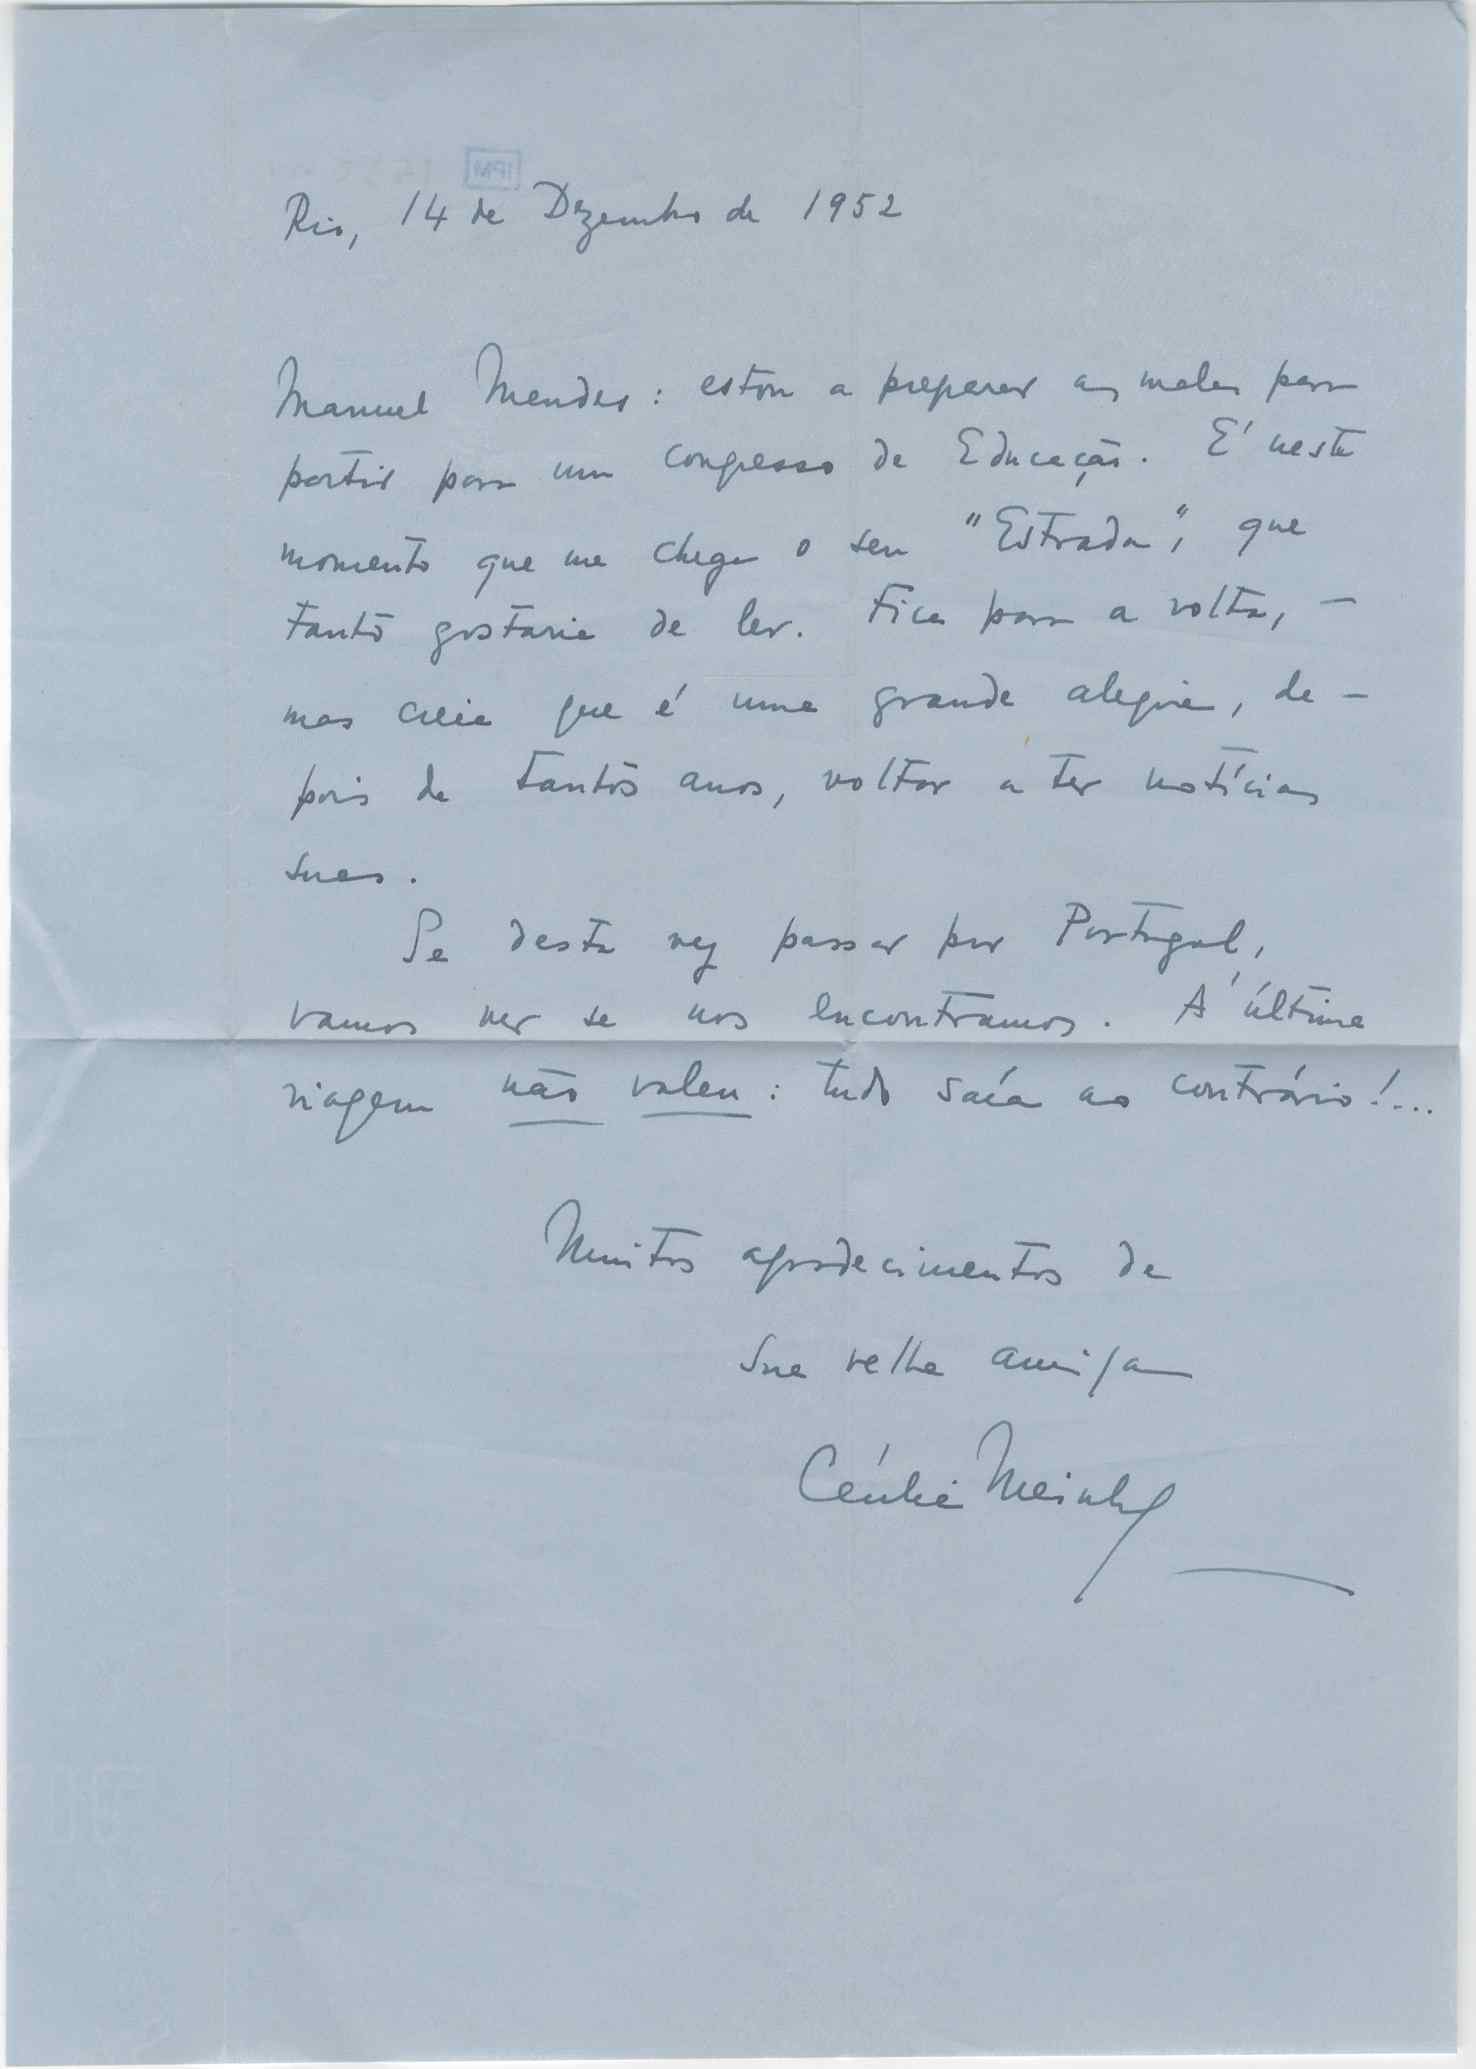 Rio, 14 de Dezembro de 1952
Manuel Mendes: estou a preparar as malas para
partir para um congresso de Educação. É neste
momento que me chega o seu "Estrada", que
tanto gostaria de ler. Fica para a volta, —
mas creia que é uma grande alegria, de-
pois de tantos anos, voltar a ter notícias
suas.
Se desta vez passar por Portugal,
vamos ver se nos encontramos. A última
viagem não valeu: tudo saía ao contrário!...
Muitos agradecimentos de
Sua velha amiga
Cecília Meireles